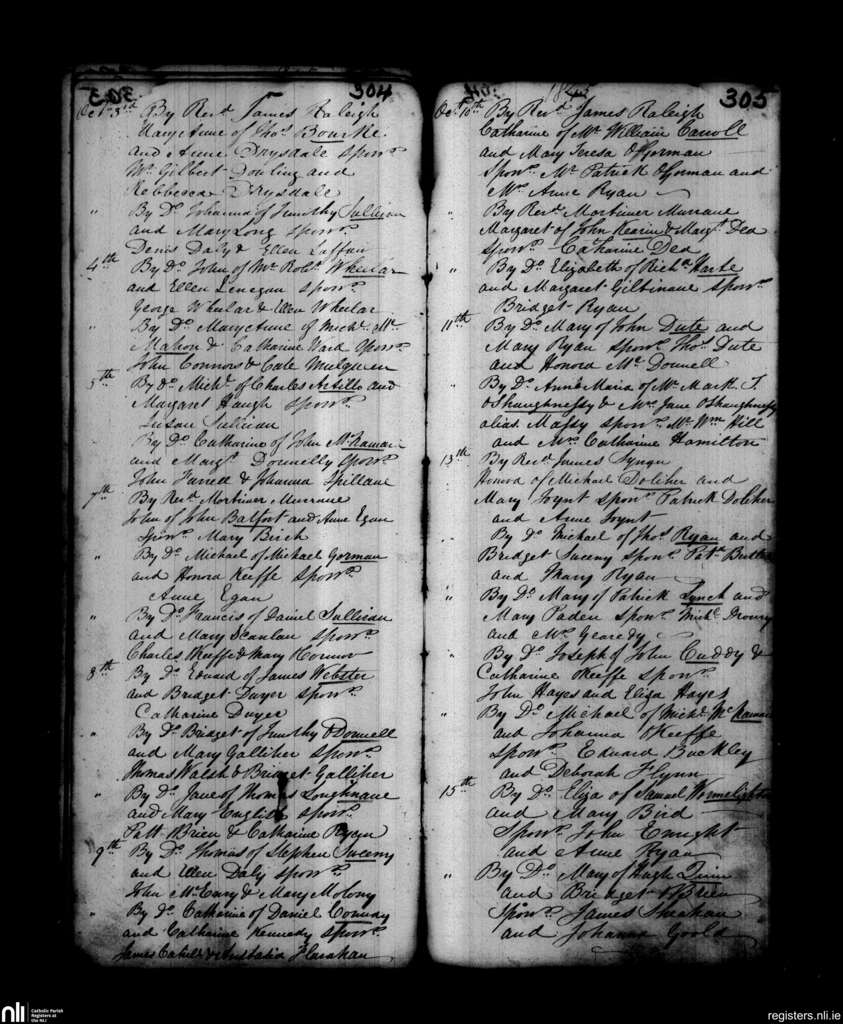 303
304
Octr 3rd By Revd James Raleigh
Mary Anne of Thos Bourke
and Anne Drysdale sponrs
Wm Gilbert Dowling and
Rebbecca Drysdale
" By Do Johanna of Timothy Sullivan
and Mary Long sponrs
Denis Daly & Ellen Laffan
4th By Do John of Mr Robt Wheelar
and Ellen Lenegan sponrs
George Wheelar & Ellen Wheelar
" By Do Mary Anne of Michl Mc
Mahon & Catharine Ward sponrs
John Connors & Cate Mulqueen
5th By Do Michl of Charles Astille and
Margaret Haugh sponrs
Susan Sulivan
By Do Catharine of John McNamar
and Margt Donnelly sponrs
John Farrell & Johanna Spillane
7th By Revd Mortimer Murnane
John of John Balfort and Anne Egan
Sponrs Mary Birch
" By Do Michael of Michael Gorman
and Honora Keiffe sponrs
Anne Egan
" By Do Francis of Daniel Sullivan
and Mary Scanlan sponrs
Charles Keiffe & Mary OConnor
8th By Do Edward of James Webster
and Bridget Dwyer sponrs
Catharine Dwyer
" By Do Bridget of Timothy ODonnell
and Mary Galliher sponrs
Thomas Walsh & Bridget Galliher
" By Do Jane of Thomas Loughnane
and Mary English sponrs
Patt Brien & Catharine Ryan
9th By Do Thomas of Stephen Sweeny
and Ellen Daly sponrs
John McEnry & Mary Molony
" By Do Catharine of Daniel Conway
and Catharine Kennedy sponrs
James Cahill & Anstatia
305
Octr 10th By Revd James Raleigh
Catharine of Mr William Carroll
and Mary Teresa OGorman
sponrs Mr Patrick OGorman and
Mrs Anne Ryan
" By Revd Mortimer Murnane
Margaret of John Kearin & Margt Dea
sponrs Catharine Dea
" By Do Elizabeth of Richd Harte
and Margaret Giltinane sponrs
Bridget Ryan
11th By Do Mary of John Dute and
Mary Ryan sponrs Thos Dute
and Honora McDonnell
" By Do Anna Maria of Mr Mark T.
OShaughnessy & Mrs Jane OShaughnessy
alias Massy sponrs Mr Wm Hill
and Mrs Catharine Hamilton
13th By Revd James Synan
Honora of Michael Doliher and
Mary Joynt sponrs Patrick Doliher
and Anne Joynt
" By Do Michael of Thos Ryan and
Bridget Sweeny sponrs Patk
and Mary Ryan
" By Do Mary of Patrick Lynch and
Mary Paden sponrs Michl
and Mrs Gearedy
" By Do Joseph of John Cuddy &
Catharine Keiffe sponrs
John Hayes and Eliza Hayes
" By Do Michael of Michl McNamar
and Johanna OKeeffe
sponrs Edward Buckley
and Deborah Flynn
15th By Do Eliza of Samuel
and Mary Bird
Sponrs John Enright
and Anne Ryan
" By Do Mary of Hugh Quinn
and Bridget OBrien
Sponrs James Sheahan
and Johanna Goold
nli
Catholic Parish
Registers at
the NLI
registers.nli.ie